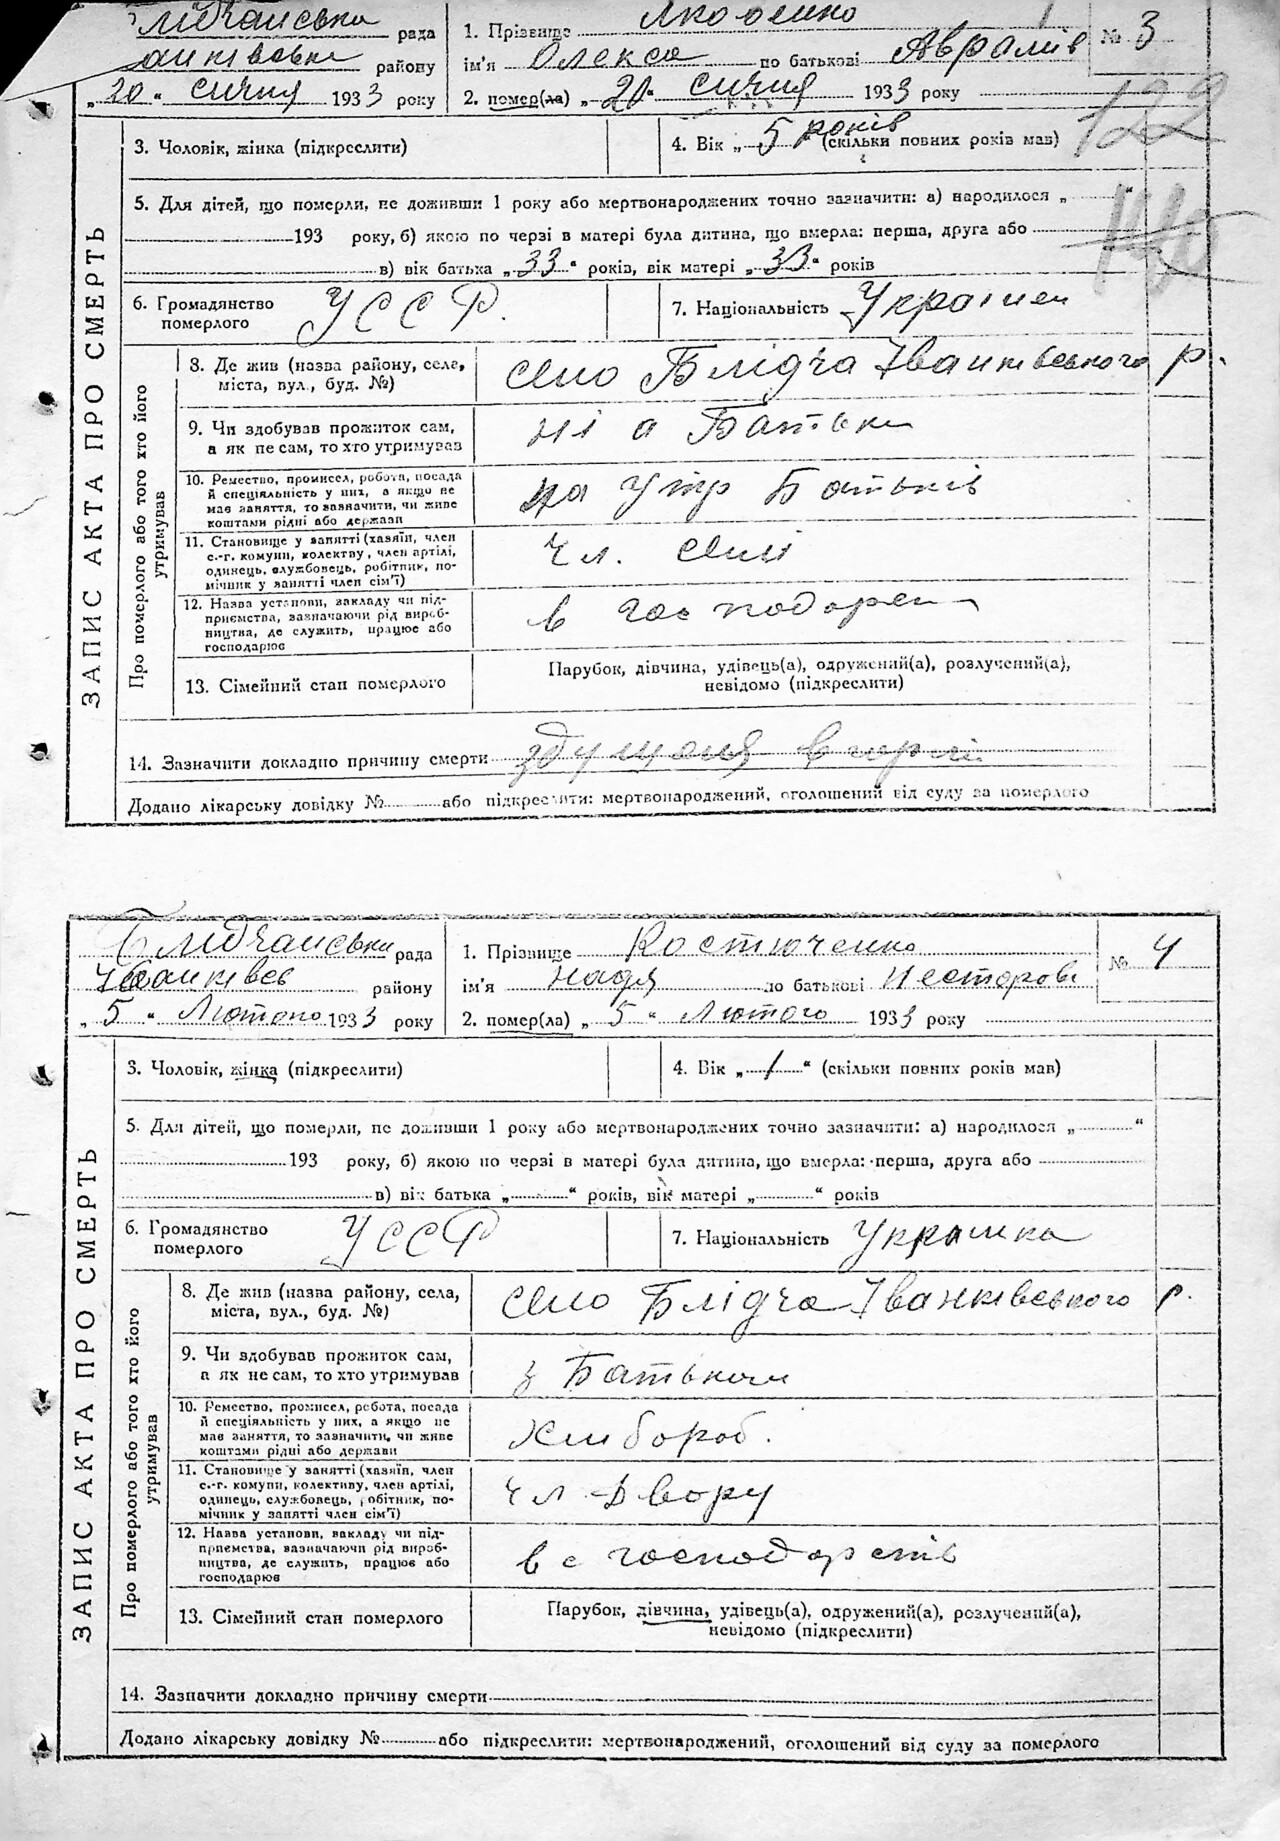 Блідчанська рада
1. Прізвище Якобенко
№ 3
район
імя Олекса по батькові Аврамів
„20“ січня 1933 року
2. помер(ла) „20“ січня 1933 року
122
3. Чоловік, жінка (підкреслити)
4. Вік „5 років“ (скільки повних років мав)
5. Для дітей, що померли, не доживши 1 року або мертвонароджених точно зазначити: а) народилося „
193 року, б) якою по черзі в матері була дитина, що вмерла: перша, друга або
в) вік батька „33“ років, вік матері „33“ років
6. Громадянство померлого УССР.
7. Національність Українец
ЗАПИС АКТА ПРО СМЕРТЬ
Про померлого або того хто його утримував
8. Де жив (назва району, села, міста, вул., буд. №)
село Блідча Іванківського р.
9. Чи здобував прожиток сам, а як не сам, то хто утримував
ні а Батьки
10. Ремество, промисел, робота, посада й спеціяльність у них, а якщо не має заняття, то зазначити, чи живе коштами рідні або держави
на утр Батьків
11. Становище у занятті (хазяїн, член с.-г. комуни, колективу, член артілі, одинець, службовець, робітник, помічник у занятті член сім'ї)
Чл. сімї
12. Назва установи, закладу чи підприємства, зазначаючи рід виробництва, де служить, працює або господарює
в господарсті
13. Сімейний стан померлого
Парубок, дівчина, удівець(а), одружений(а), розлучений(а), невідомо (підкреслити)
14. Зазначити докладно причину смерти
Додано лікарську довідку № або підкреслити: мертвонароджений, оголошений від суду за померлого
Блідчанська рада
1. Прізвище Костюченко
№ 4
Іванківсь району
ім'я Надя по батькові Несторові
„5“ Лютого 1933 року
2. помер(ла) „5“ Лютого 1933 року
3. Чоловік, жінка (підкреслити)
4. Вік „1“ (скільки повних років мав)
5. Для дітей, що померли, не доживши 1 року або мертвонароджених точно зазначити: а) народилося „ “
193 року, б) якою по черзі в матері була дитина, що вмерла: перша, друга або
в) вік батька „ “ років, вік матері „ “ років
6. Громадянство померлого УССР
7. Національність Українка
ЗАПИС АКТА ПРО СМЕРТЬ
Про померлого або того хто його утримував
8. Де жив (назва району, села, міста, вул., буд. №)
село Блідча Іванківського р.
9. Чи здобував прожиток сам, а як не сам, то хто утримував
з Батьком
10. Ремество, промисел, робота, посада й спеціяльність у них, а якщо не має заняття, то зазначити, чи живе коштами рідні або держави
Хлібороб.
11. Становище у занятті (хазяїн, член с.-г. комуни, колективу, член артілі, одинець, службовець, робітник, помічник у занятті член сім'ї)
чл Двору
12. Назва установи, закладу чи підприємства, зазначаючи рід виробництва, де служить, працює або господарює
в с господарстві
13. Сімейний стан померлого
Парубок, дівчина, удівець(а), одружений(а), розлучений(а), невідомо (підкреслити)
14. Зазначити докладно причину смерти
Додано лікарську довідку № або підкреслити: мертвонароджений, оголошений від суду за померлого